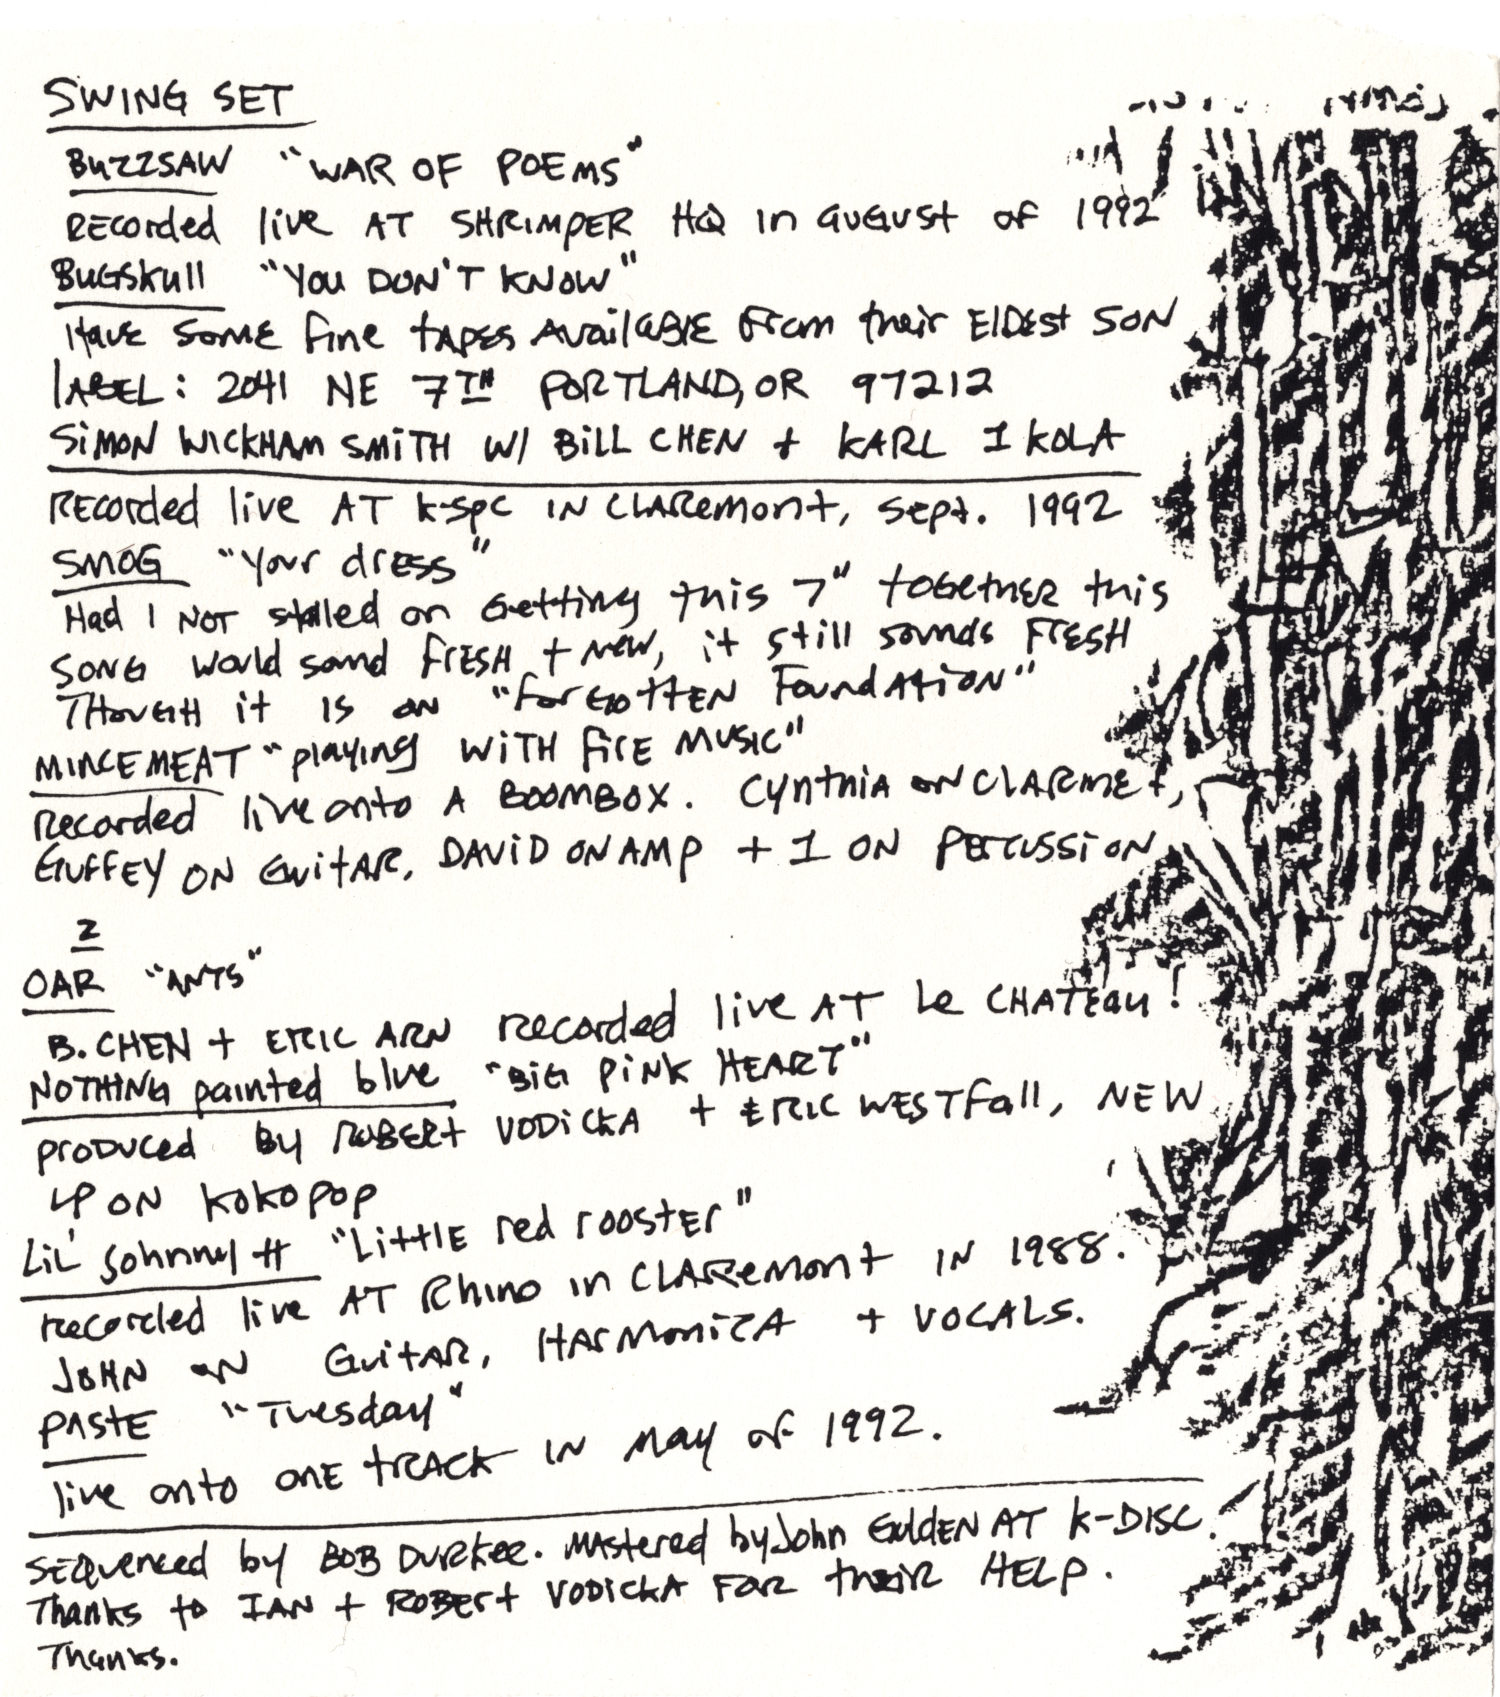 SWING SET
BUZZSAW "WAR OF POEMS"
RECORDED live AT SHRIMPER HQ in AUGUST of 1992
BUGSKULL "YOU DON'T KNOW"
Have some fine tapes AVAILABLE from their ELDEST SON
LABEL: 2041 NE 7TH PORTLAND, OR 97212
SIMON WICKHAM SMITH W/ BILL CHEN + KARL IKOLA
RECORDED live AT K-SPC IN CLAREMONT, Sept. 1992
SMOG "Your dress"
Had I NOT stalled on Getting this 7" TOGETHER this
SONG would sound FRESH + NEW, it still sounds FRESH
THOUGH it is on "FORGOTTEN FOUNDATION"
MINCEMEAT "playing WITH fire MUSIC"
Recorded live onto A BOOMBOX. Cynthia on CLARINET,
GUFFEY ON GUITAR, DAVID ON AMP + I ON PERCUSSION
2
OAR "ANTS"
B. CHEN + ERIC ARN recorded live AT Le CHATEAU!
NOTHING painted blue "BIG PINK HEART"
produced BY ROBERT VODICKA + ERIC WESTFALL, NEW
LP ON KOKOPOP
LIL' Johnny H "LITTLE red rooster"
recorded live AT Rhino in CLAREMONT IN 1988.
JOHN ON GUITAR, HARMONICA + VOCALS.
PASTE "Tuesday"
live onto ONE TRACK IN MAY of 1992.
SEQUENCED by BOB DURKEE. MASTERED by John GOLDEN AT K-DISC.
Thanks to IAN + ROBERT VODICKA FOR their HELP.
Thanks.